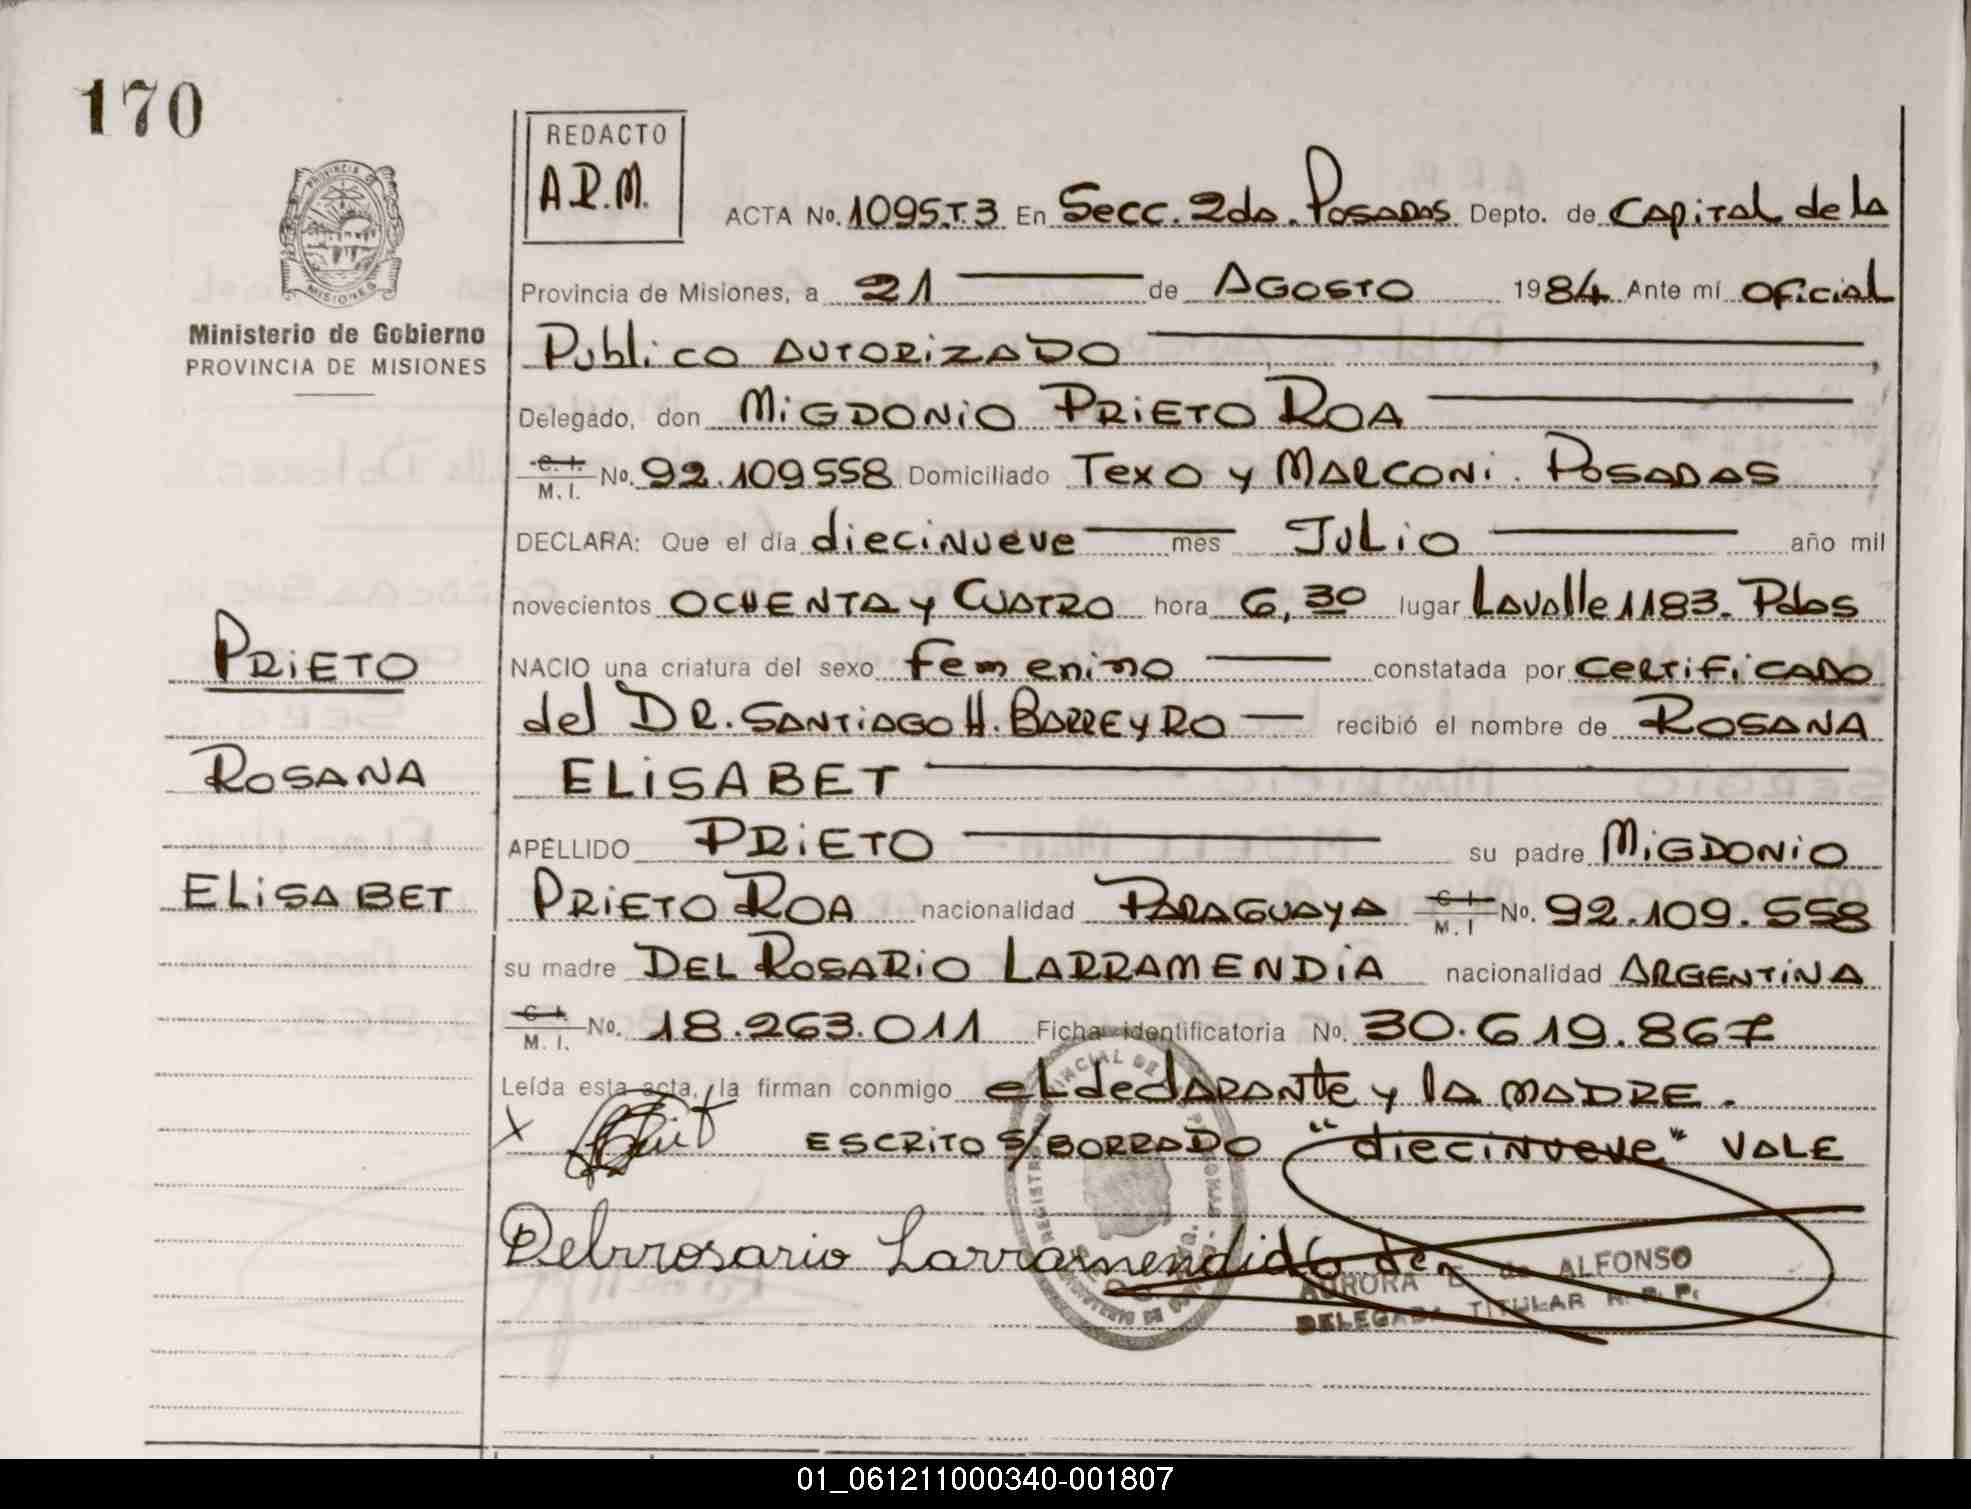 170
REDACTO
A.R.M.
PROVINCIA D
MISIONES
Ministerio de Gobierno
PROVINCIA DE MISIONES
ACTA No. 1095.T.3 En Secc. 2da. POSADAS Depto. de CAPITAL de la
Provincia de Misiones, a 21 de AGOSTO 1984 Ante mí OFICIAL
Publico AUTORIZADO ,
Delegado, don MIGDONIO PRIETO ROA
C. I. M. I. No. 92.109558 Domiciliado TEXO y MARCONI. POSADAS
DECLARA: Que el día diecinueve mes JULIO año mil
novecientos OCHENTA y CUATRO hora 6,30 lugar Lavalle 1183. Pdas
NACIO una criatura del sexo femenino constatada por CERTIFICADO
del DR. SANTIAGO H. BARREYRO recibió el nombre de ROSANA
ELISABET
APELLIDO PRIETO su padre MIGDONIO
PRIETO ROA nacionalidad PARAGUAYA C I M. I No. 92.109.558
su madre DEL ROSARIO LARRAMENDIA nacionalidad ARGENTINA
C I. M. I. No. 18.263.011 Ficha identificatoria No. 30.619.867
Leída esta acta, la firman conmigo el declarante y la MADRE.
X ESCRITO S/BORRADO "diecinueve" VALE
Delrrosario Larramendia de
AURORA E. de ALFONSO
DELEGADA TITULAR R. P. P.
PRIETO
ROSANA
ELISABET
01_061211000340-001807